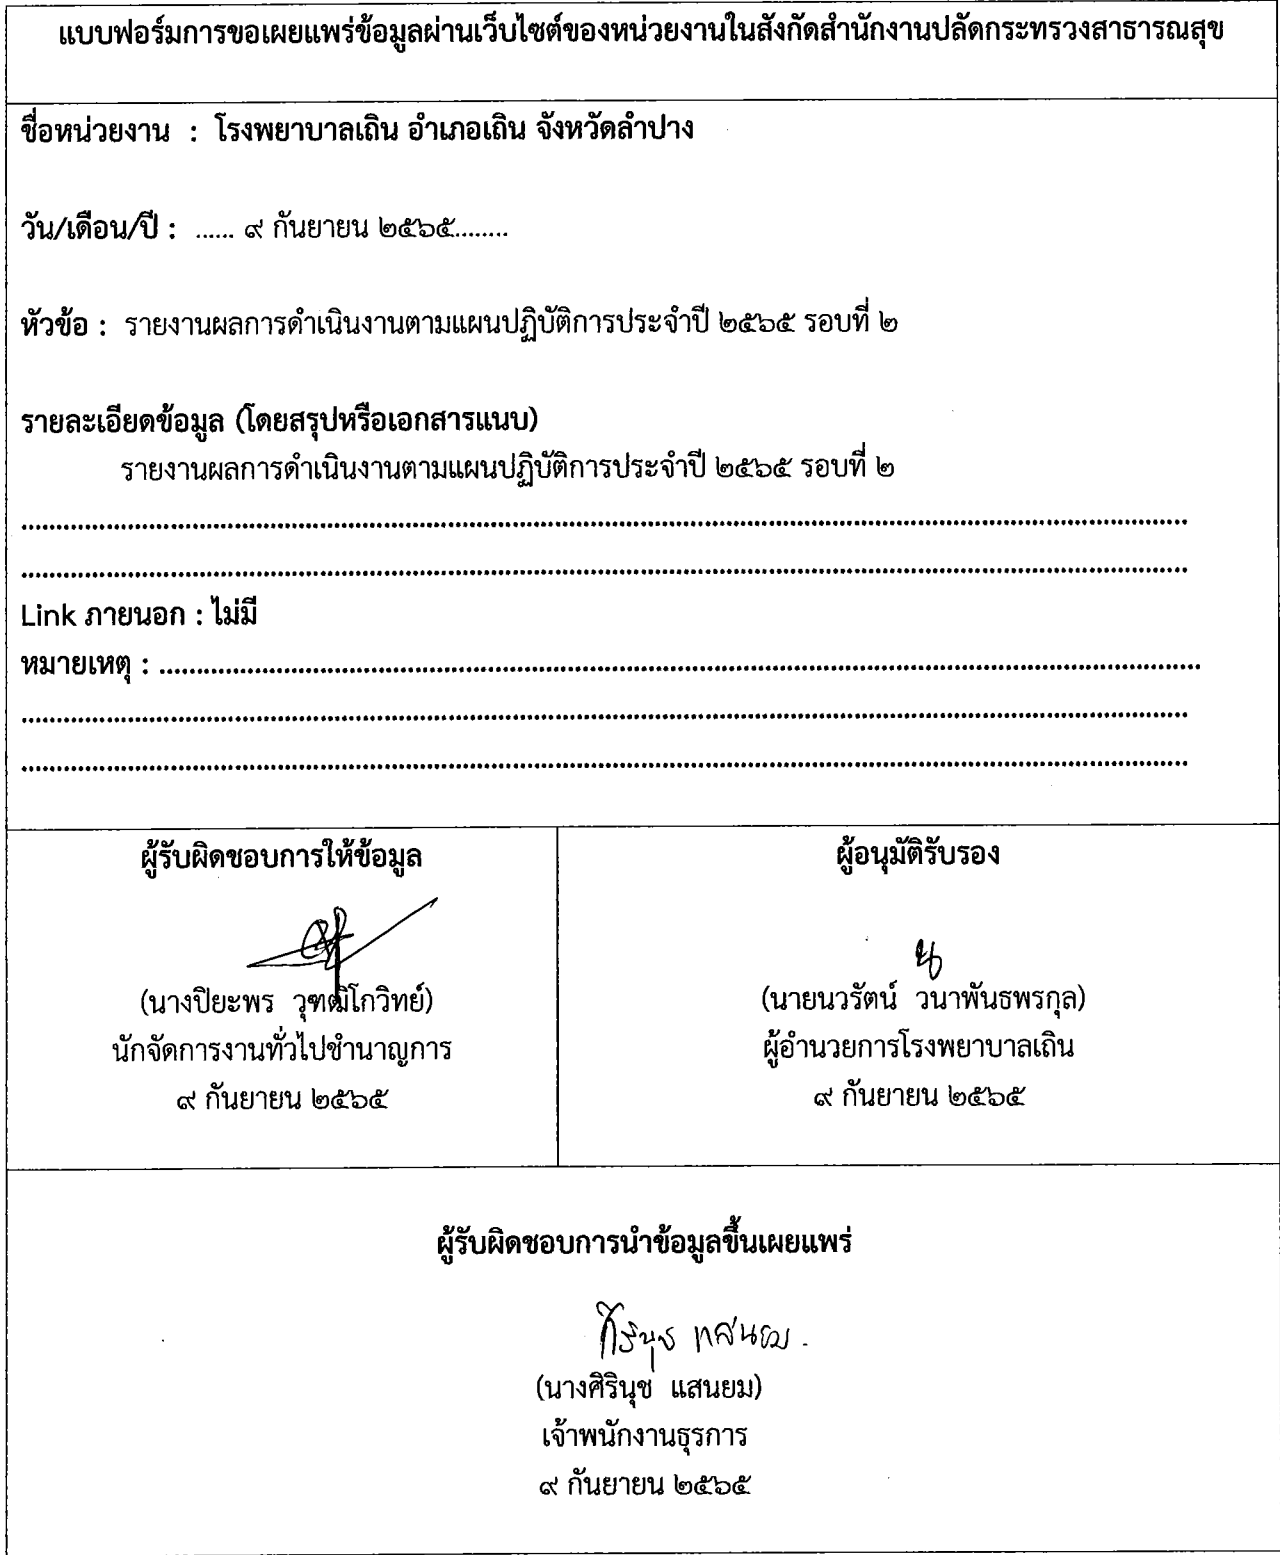 แบบฟอร์มการขอเผยแพร่ข้อมูลผ่านเว็บไซต์ของหน่วยงานในสังกัดสำนักงานปลัดกระทรวงสาธารณสุข
ชื่อหน่วยงาน : โรงพยาบาลเถิน อำเภอเถิน จังหวัดลำปาง
วัน/เดือน/ปี : ...... ๙ กันยายน ๒๕๖๕........
หัวข้อ : รายงานผลการดำเนินงานตามแผนปฏิบัติการประจำปี ๒๕๖๕ รอบที่ ๒
รายละเอียดข้อมูล (โดยสรุปหรือเอกสารแนบ)
รายงานผลการดำเนินงานตามแผนปฏิบัติการประจำปี ๒๕๖๕ รอบที่ ๒
Link ภายนอก : ไม่มี
หมายเหตุ :
ผู้รับผิดชอบการให้ข้อมูล
(นางปิยะพร วุฑฒิโกวิทย์)
นักจัดการงานทั่วไปชำนาญการ
๙ กันยายน ๒๕๖๕
ผู้อนุมัติรับรอง
(นายนวรัตน์ วนาพันธพรกุล)
ผู้อำนวยการโรงพยาบาลเถิน
๙ กันยายน ๒๕๖๕
ผู้รับผิดชอบการนำข้อมูลขึ้นเผยแพร่
ศิรินุช แสนยม
(นางศิรินุช แสนยม)
เจ้าพนักงานธุรการ
๙ กันยายน ๒๕๖๕